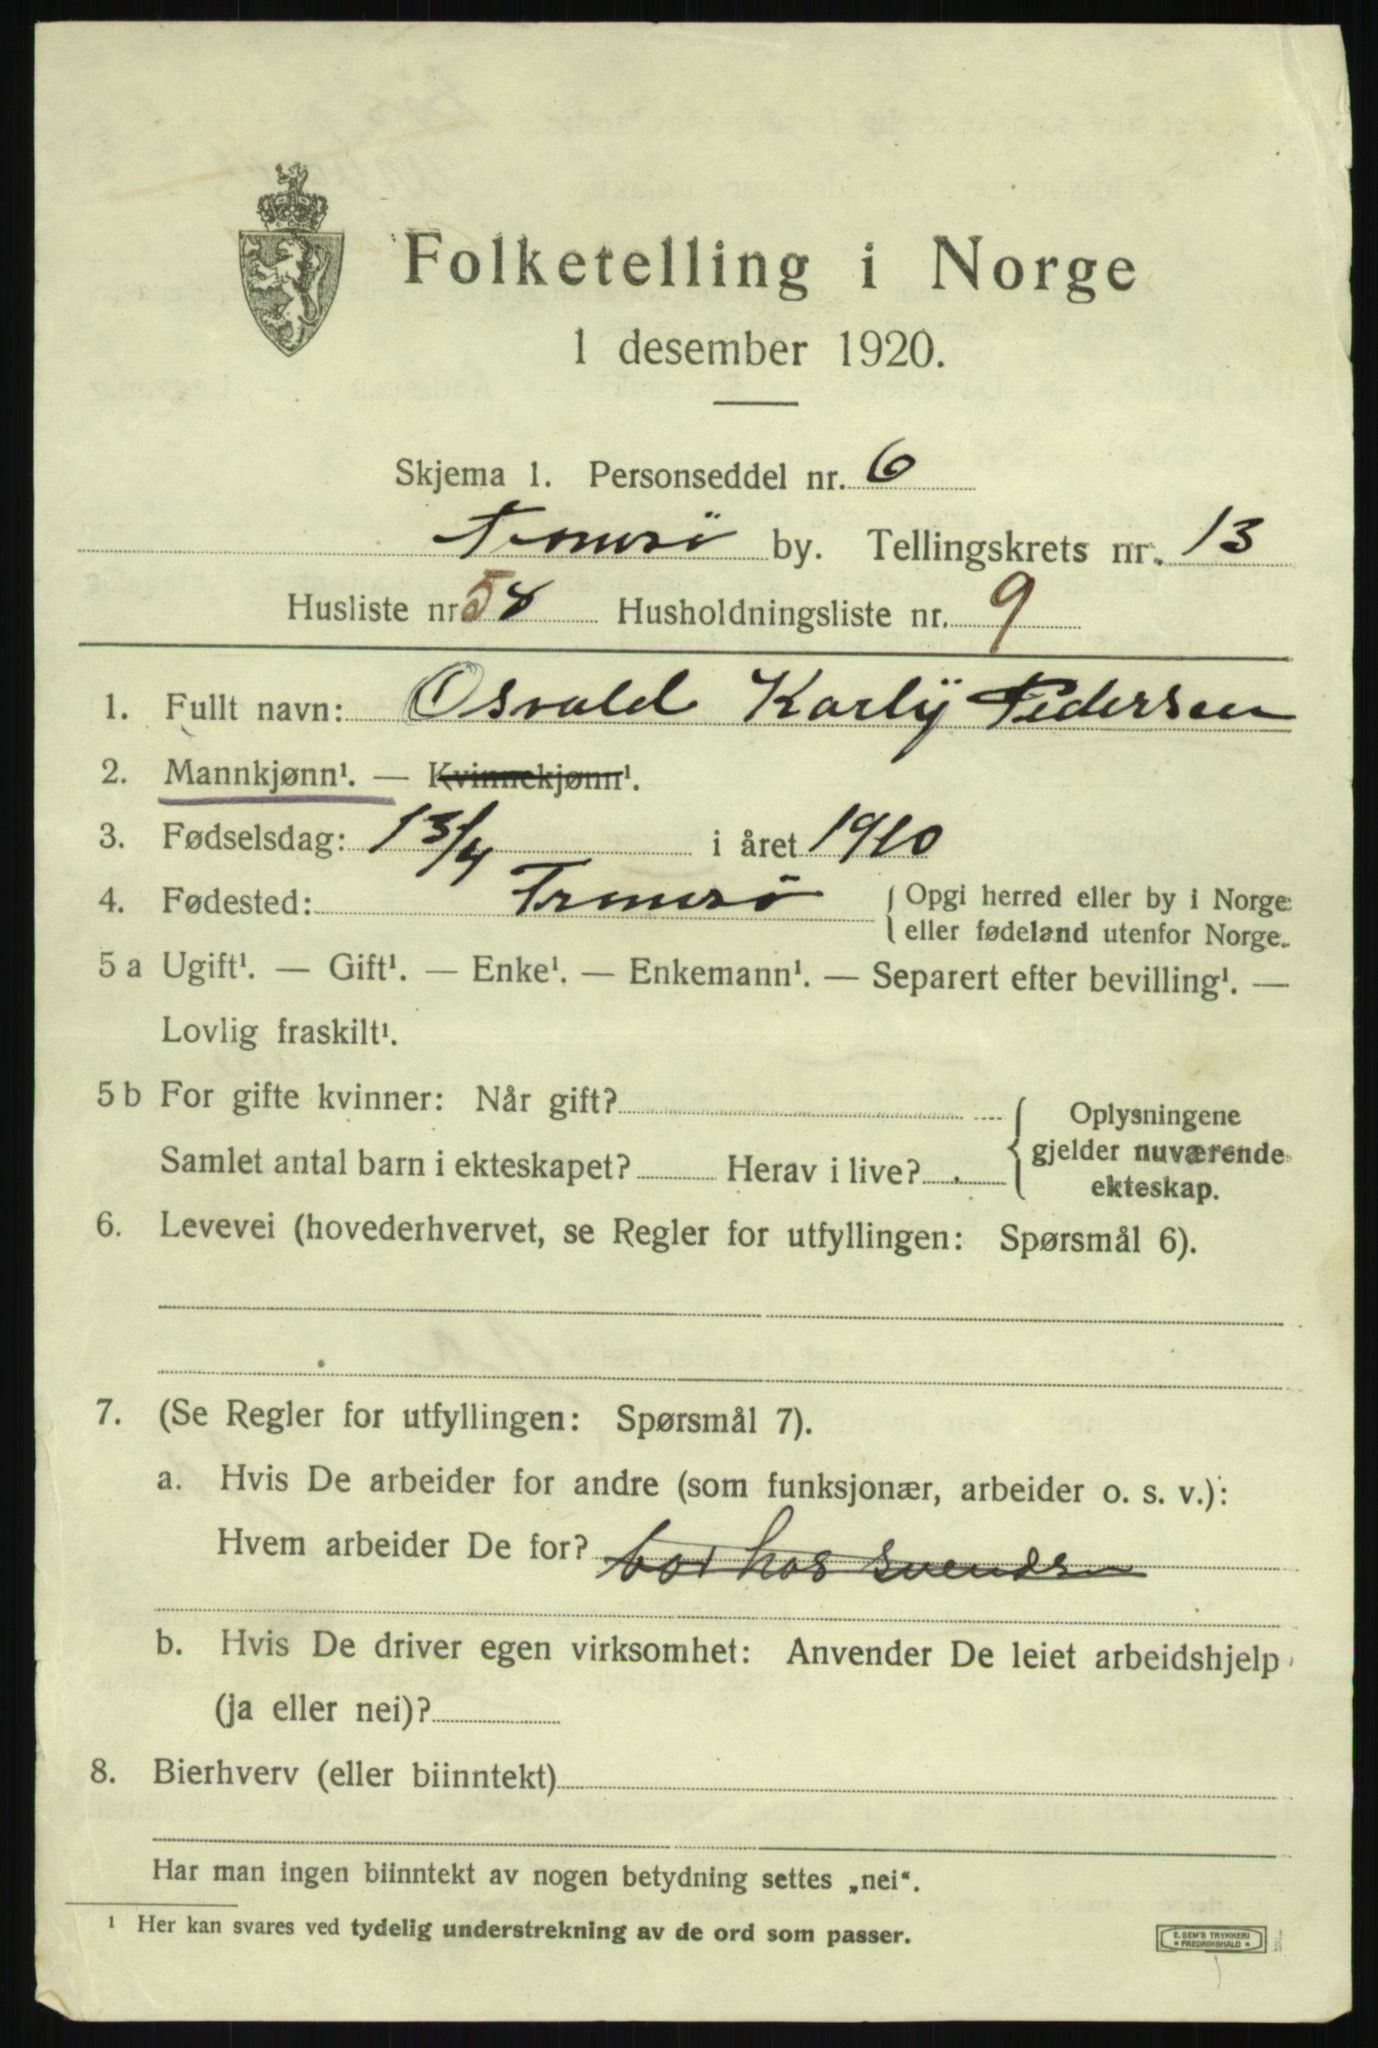 Folketelling i Norge
1 desember 1920.
Skjema 1. Personseddel nr. 6
Tromsö by. Tellingskrets nr. 13
Husliste nr. 58 Husholdningsliste nr. 9
1. Fullt navn: Osvald Karly Pedersen
2. Mannkjønn¹. — Kvinnekjønn¹.
3. Fødselsdag: 13/4 i året 1910
4. Fødested: Tromsö { Opgi herred eller by i Norge
eller fødeland utenfor Norge.
5 a Ugift¹. — Gift¹. — Enke¹. — Enkemann¹. — Separert efter bevilling¹. —
Lovlig fraskilt¹.
5 b For gifte kvinner: Når gift? { Oplysningene
gjelder nuværende
Samlet antal barn i ekteskapet? Herav i live? ekteskap.
6. Levevei (hovederhvervet, se Regler for utfyllingen: Spørsmål 6).
7. (Se Regler for utfyllingen: Spørsmål 7).
a. Hvis De arbeider for andre (som funksjonær, arbeider o. s. v.):
Hvem arbeider De for? bor hos Svendsen
b. Hvis De driver egen virksomhet: Anvender De leiet arbeidshjelp
(ja eller nei)?
8. Bierhverv (eller biinntekt)
Har man ingen biinntekt av nogen betydning settes „nei“.
¹ Her kan svares ved tydelig understrekning av de ord som passer.
E. SEM'S TRYKKERI
• FREDRIKSHALD •